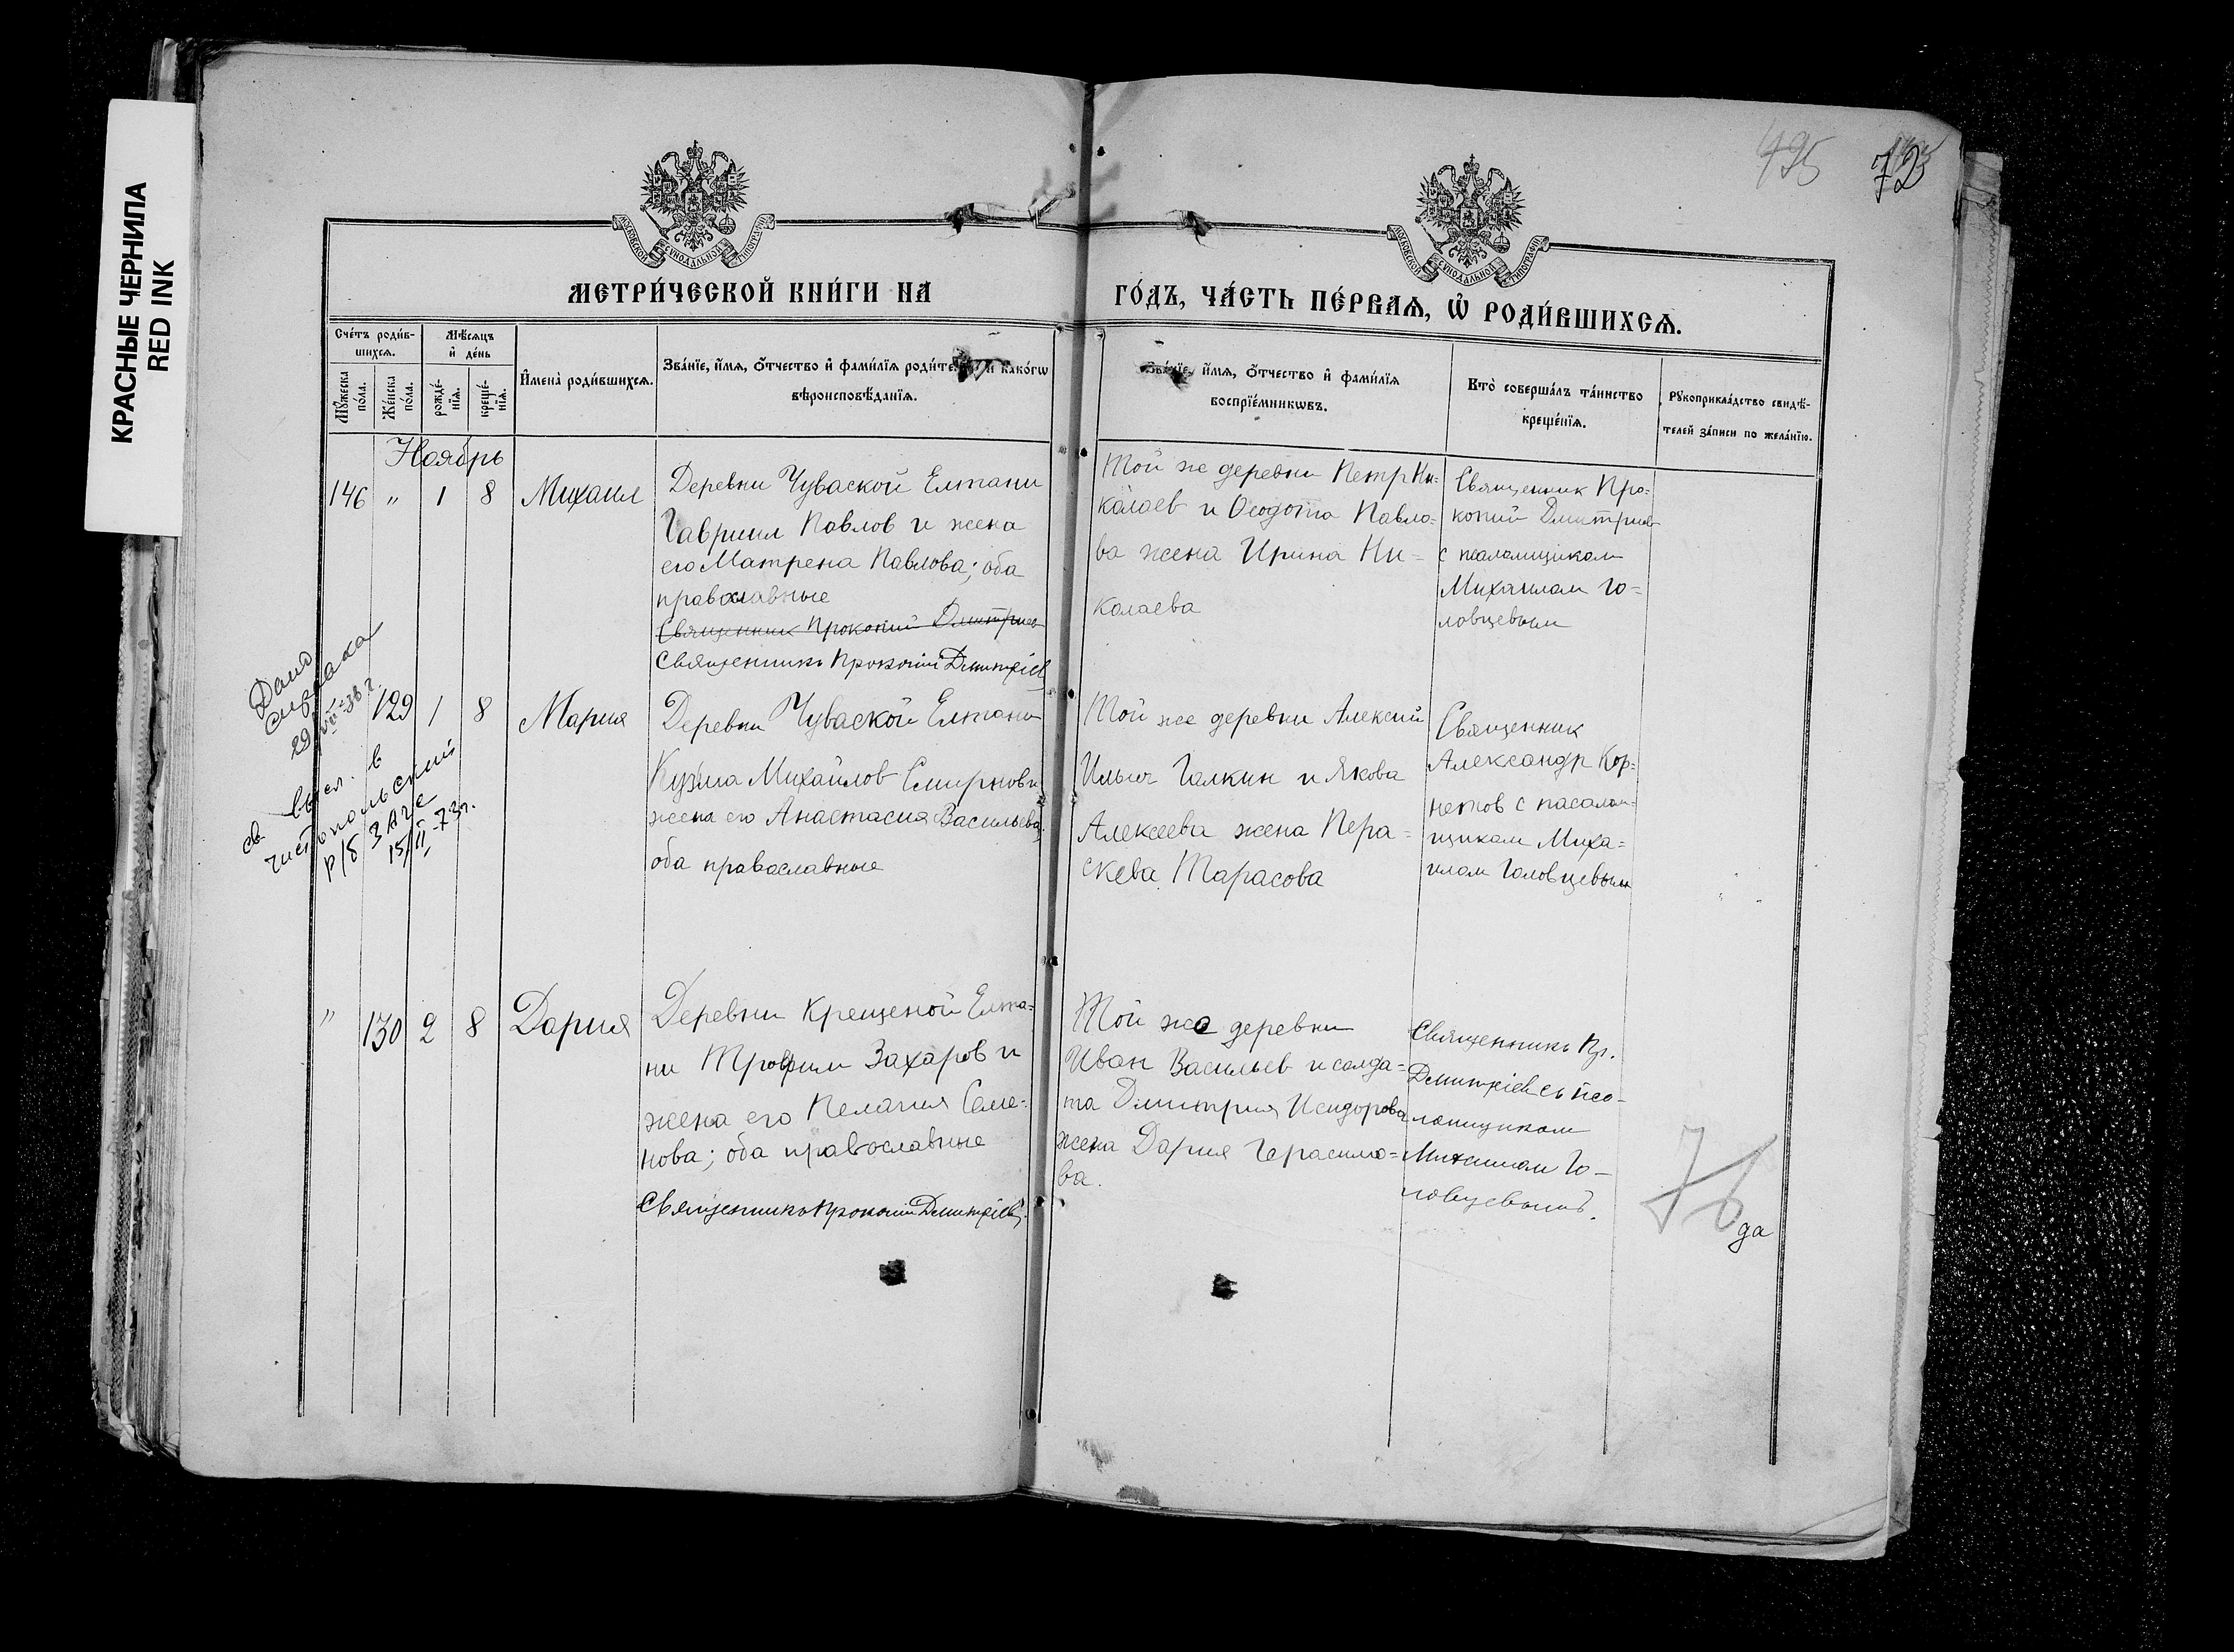 КРАСНЫЕ ЧЕРНИЛА
RED INK
495
72
МОСКОВСКОЙ СѴНОДАЛЬНОЙ ТИПОГРАФІИ
МОСКОВСКОЙ СѴНОДАЛЬНОЙ ТИПОГРАФІИ
МЕТРИ́ЧЕСКОЙ КНИ́ГИ НА
ГО́ДЪ, ЧА́СТЬ ПЕ́РВАЯ, Ѡ҆ РОДИ́ВШИХСЯ.
Сче́тъ роди́в-
шихся.
Мꙋ́жеска по́ла.
Же́нска по́ла.
Мѣ́сяцъ
и҆ де́нь
рожде́-
нїѧ.
креще́-
нїѧ.
И҆мена̀ роди́вшихся.
Зва́нїе, и҆́мя, ѻ҆́тчество и҆ фами́лїя роди́те и҆ како́гѡ
вѣроисповѣ́данїя.
Зва́нїе, и҆́мя, ѻ҆́тчество и҆ фами́лїя
воспрїе́мникѡвъ.
Кто̀ соверша́лъ та́инство
креще́нїя.
Рꙋкоприкла́дство свидѣ́-
телей за́писи по жела́нїю.
Ноябрь
146 " 1 8 Михаил
Деревни Чуваской Елтани
Гавриил Павлов и жена
его Матрена Павлова; оба
православные
Священник Прокопий Дмитриев
Священникъ Прокопій Дмитріев
Той же деревни Петр Ни-
калаев и Ѳеодота Павло-
ва жена Ирина Ни-
колаева
Священник Про-
копий Дмитриев
с псаломщиком
Михаилом Го-
ловцевым
Дана
справка
29/VII-38 г.
св. высл. в
чистопольский
р/б ЗАГС
15/II-73г.
129 1 8 Мария
Деревни Чуваской Елтани
Кузма Михайлов Смирнов и
жена его Анастасия Васильева;
оба православные
Той же деревни Алексий
Ильич Галкин и Якова
Алексеева жена Пера-
скева Тарасова
Священник
Александр Кор-
нетов с псалом-
щикам Миха-
илом Головцевым
" 130 2 8 Дария
Деревни Крещеной Елта-
ни Трофим Захаров и
жена его Пелагия Семе-
нова; оба православные
Священникъ Прокопій Дмитріевъ.
Той же деревни
Иван Васильев и солда-
та Дмитрия Исидорова
жена Дария Герасимо-
ва.
Священникъ Пр.
Дмитріев съ пса-
ломщиком
Михаилом Го-
ловцевымъ.
да